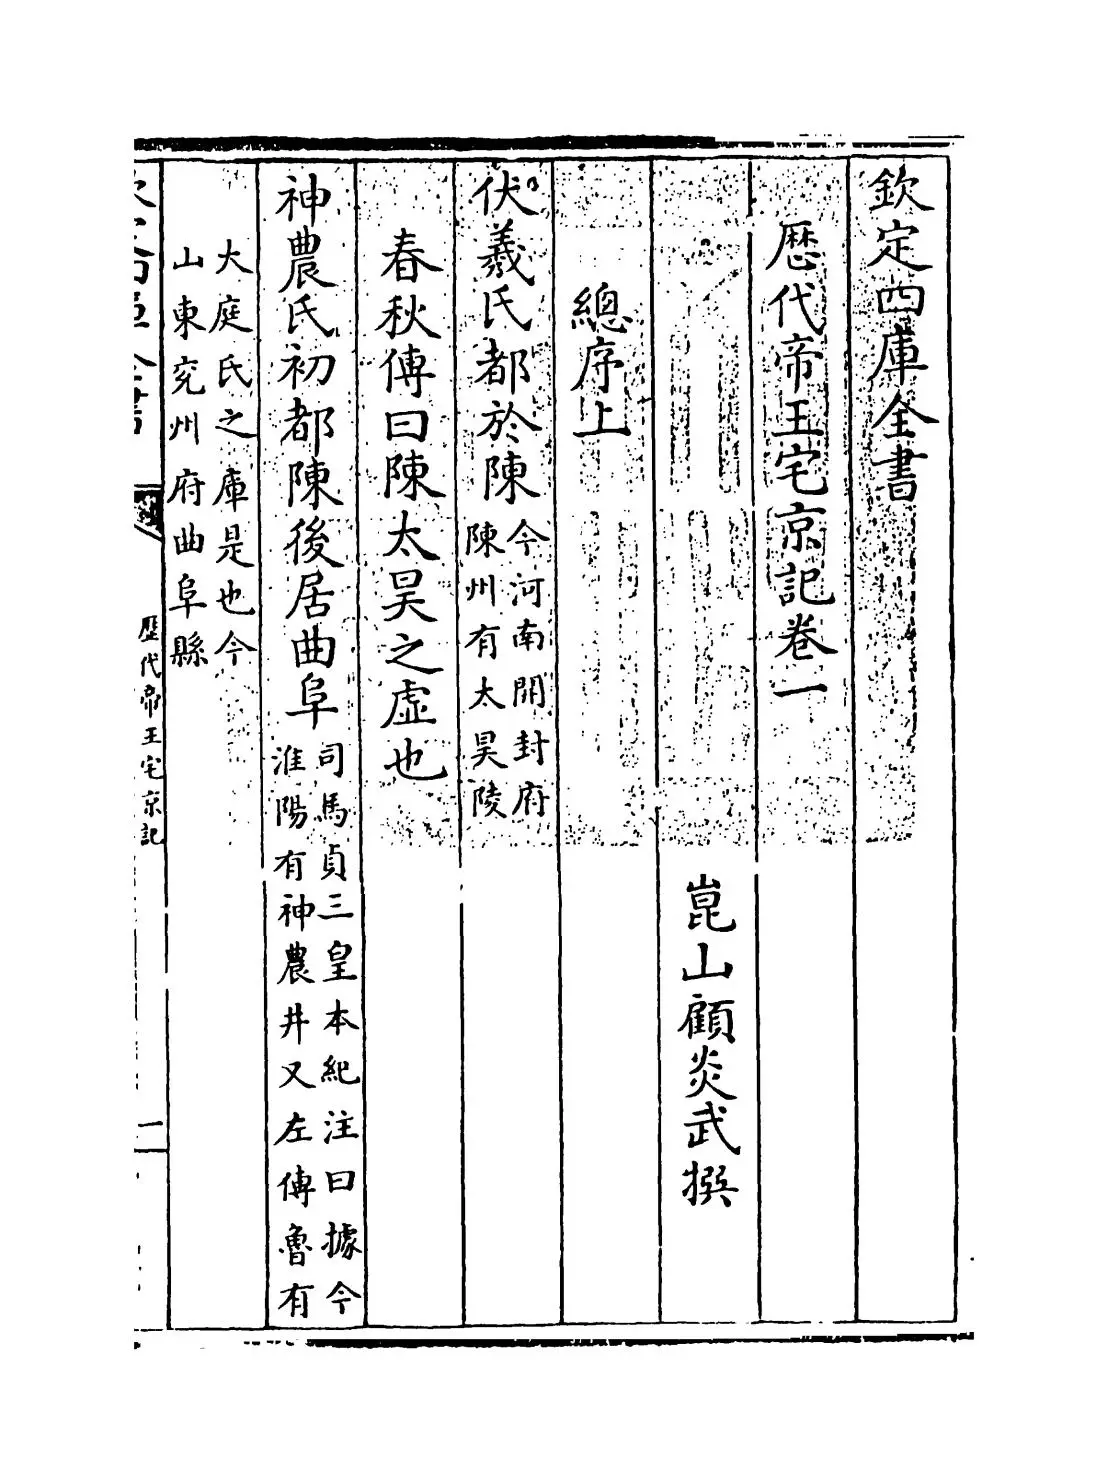 欽定四庫全書
歴代帝王宅京記卷一
崑山顧炎武撰
總序上
伏羲氏都於陳今河南開封府陳州有太昊陵
春秋傳曰陳太昊之虛也
神農氏初都陳後居曲阜司馬貞三皇本紀注曰據今淮陽有神農井又左傳魯有
大庭氏之庫是也今山東兖州府曲阜縣
歴代帝王宅京記
一